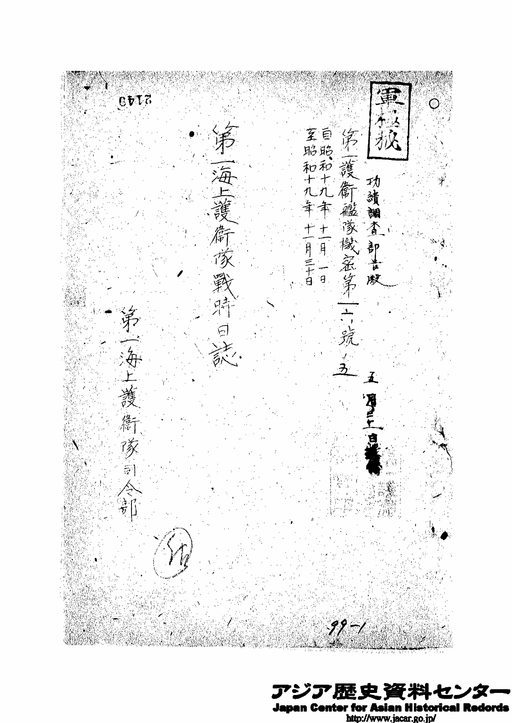 軍極秘
功績調査部
第一護衛艦隊機密第一六號ノ五
自昭和十九年十一月一日
至昭和十九年十一月三十日
第一海上護衛隊戰時日誌
第一海上護衛隊司令部
2149
99-1
アジア歴史資料センター
Japan Center for Asian Historical Records
http://www.jacar.go.jp/